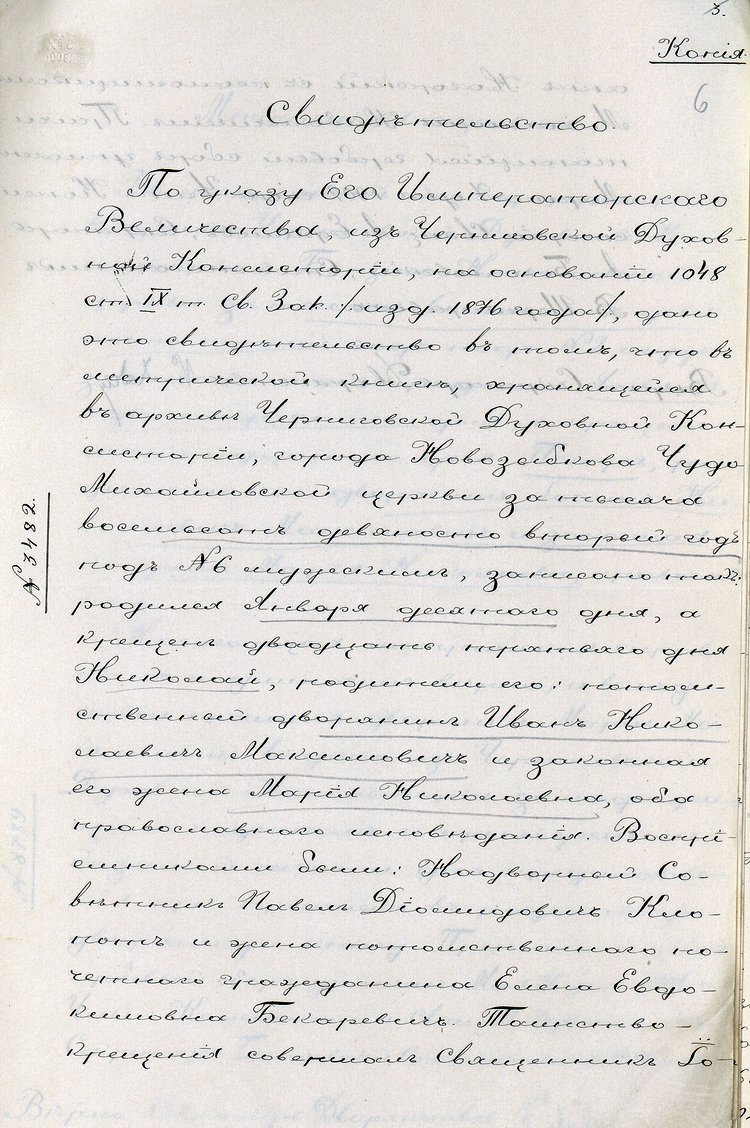 3.
Копія.
6
Свидѣтельство.
По указу Его Императорского
Величества, изъ Черниговской Духов-
ной Консисторіи, на основаніи 1048
ст. IX т. Св. Зак. /изд. 1876 года/, дано
это свидѣтельство въ томъ, что въ
метрической книгѣ, хранящейся
въ архивѣ Черниговской Духовной Кон-
систоріи, города Новозыбкова, Чудо
Михайловской церкви за тысяча
восемьсотъ девяносто второй годъ
подъ №6 мужескимъ, записано такъ:
родился Января десятого дня, а
крещенъ двадцать третьяго дня
Николай, родители его: потом-
ственный дворянинъ Иванъ Нико-
лаевичъ Максимовичъ и законная
его жена Марія Николаевна, оба
православного исповѣданія. Воспрі-
емниками были: Надворный Со-
вѣтникъ Павелъ Діомидовичъ Кло-
потъ и жена потомственного по-
четного гражданина Елена Евдо-
кимовна Бекаревичъ. Таинство-
крещенія совершалъ Священникъ Іо-
№ 3482.